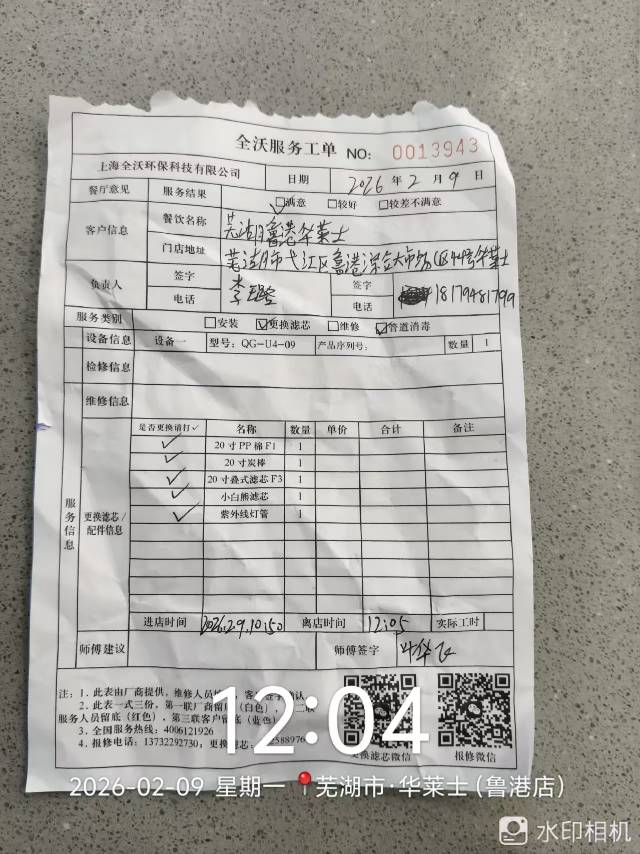 全沃服务工单 NO: 0013943
上海全沃环保科技有限公司 日期 2026 年 2 月 9 日
餐厅意见 服务结果 ☑满意 □较好 □较差不满意
客户信息 餐饮名称 芜湖鲁港华莱士
门店地址 芜湖市弋江区鲁港深仓大市场
负责人 签字 李 签字
电话 电话 18179481799
服务类别 □安装 ☑更换滤芯 □维修 ☑管道消毒
设备信息 设备一 型号：QG-U4-09 产品序列号： 数量 1
检修信息
维修信息
服务信息
更换滤芯/配件信息
是否更换请打✓ 名称 数量 单价 合计 备注
✓ 20 寸 PP 棉 F1 1
✓ 20 寸炭棒 1
✓ 20 寸叠式滤芯 F3 1
✓ 小白熊滤芯 1
✓ 紫外线灯管 1
进店时间 2026.2.9.10:50 离店时间 12:05 实际工时
师傅建议 师傅签字 叶华飞
注：1. 此表由厂商提供，维修人员 客 签字确认。
2. 此表一式三份，第一联厂商留 （白色），二
服务人员留底（红色），第三联客户留底（蓝色）
3. 全国服务热线：4006121926
4. 报修电话：13732292730；更换滤芯 2588976
更换滤芯微信 报修微信
12:04
2026-02-09 星期一 芜湖市·华莱士（鲁港店）
水印相机